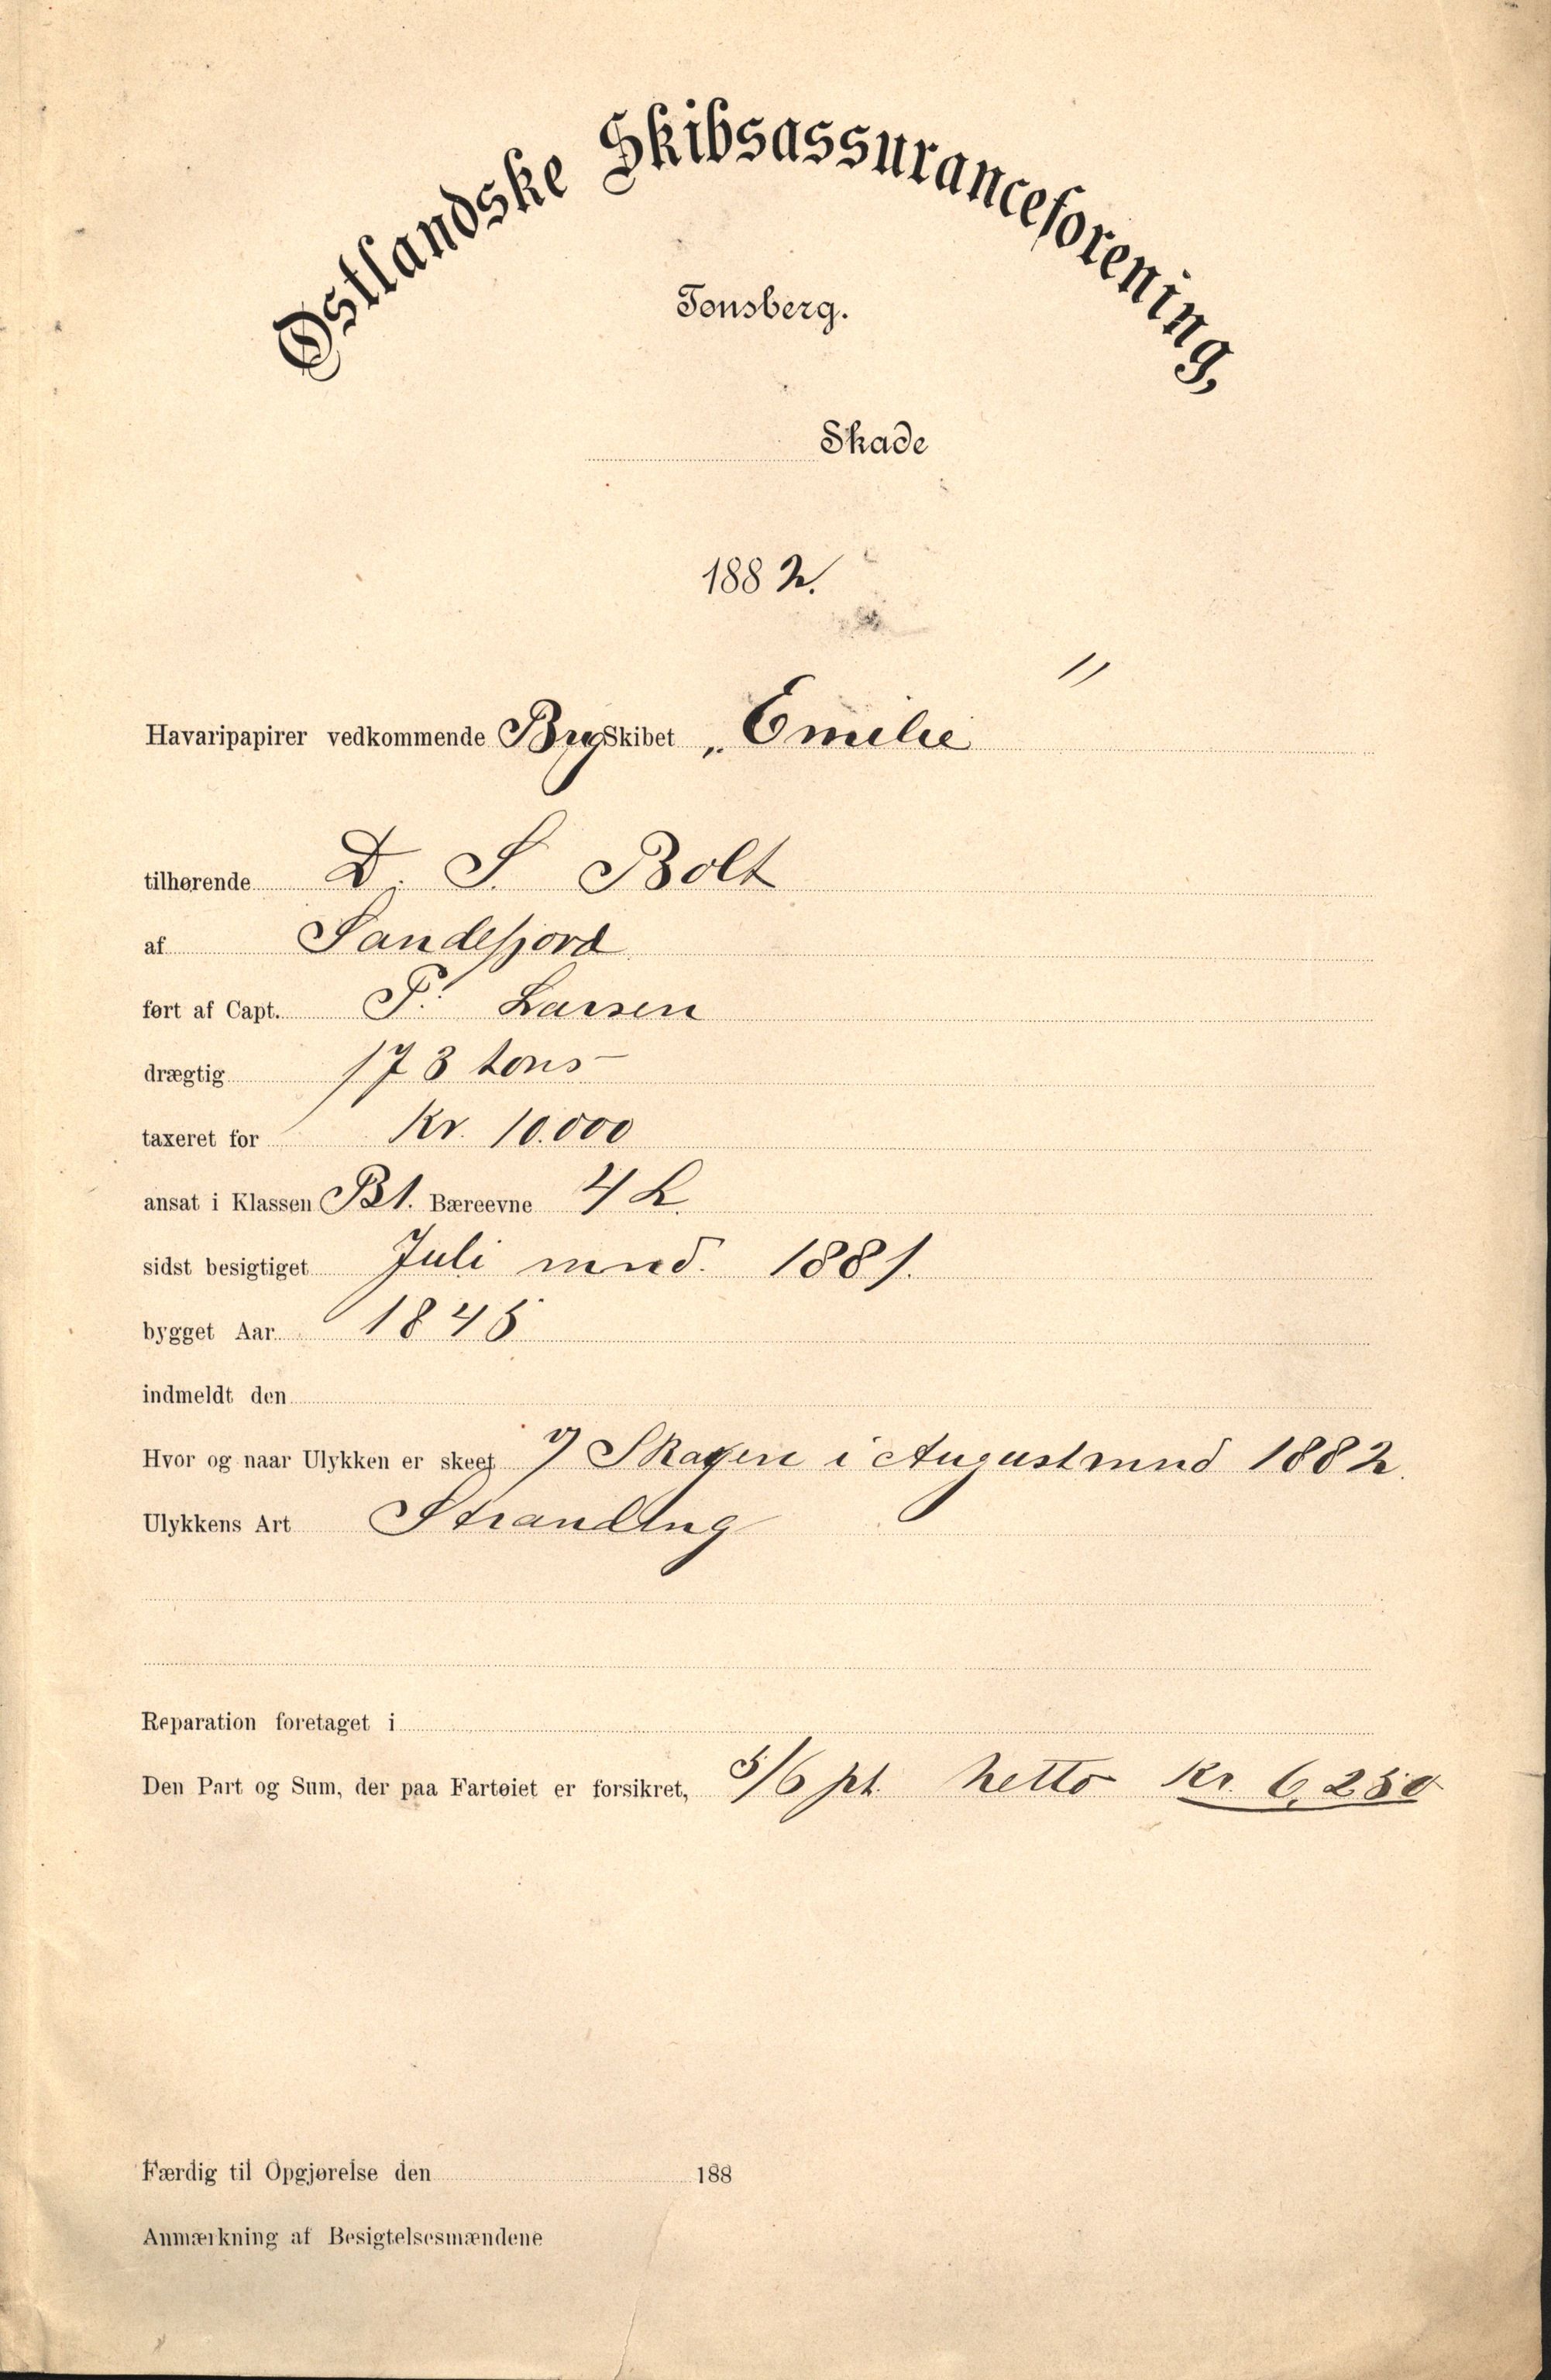 Østlandske Skibsassuranceforening,
Tønsberg.
Skade
1882.
Havaripapirer vedkommende BrigSkibet „Emilie"
tilhørende D. S. Bolt
af Sandefjord
ført af Capt. P. Larsen
drægtig 173 tons
taxeret for Kr. 10.000
ansat i Klassen B1. Bæreevne 4 L.
sidst besigtiget Juli mnd. 1881.
bygget Aar 1845
indmeldt den
Hvor og naar Ulykken er skeet Skagen i August mnd 1882.
Ulykkens Art Stranding
Reparation foretaget i
Den Part og Sum, der paa Fartøiet er forsikret, 5/6 pt. netto Kr. 6,250
Færdig til Opgjørelse den 188
Anmærkning af Besigtelsesmændene